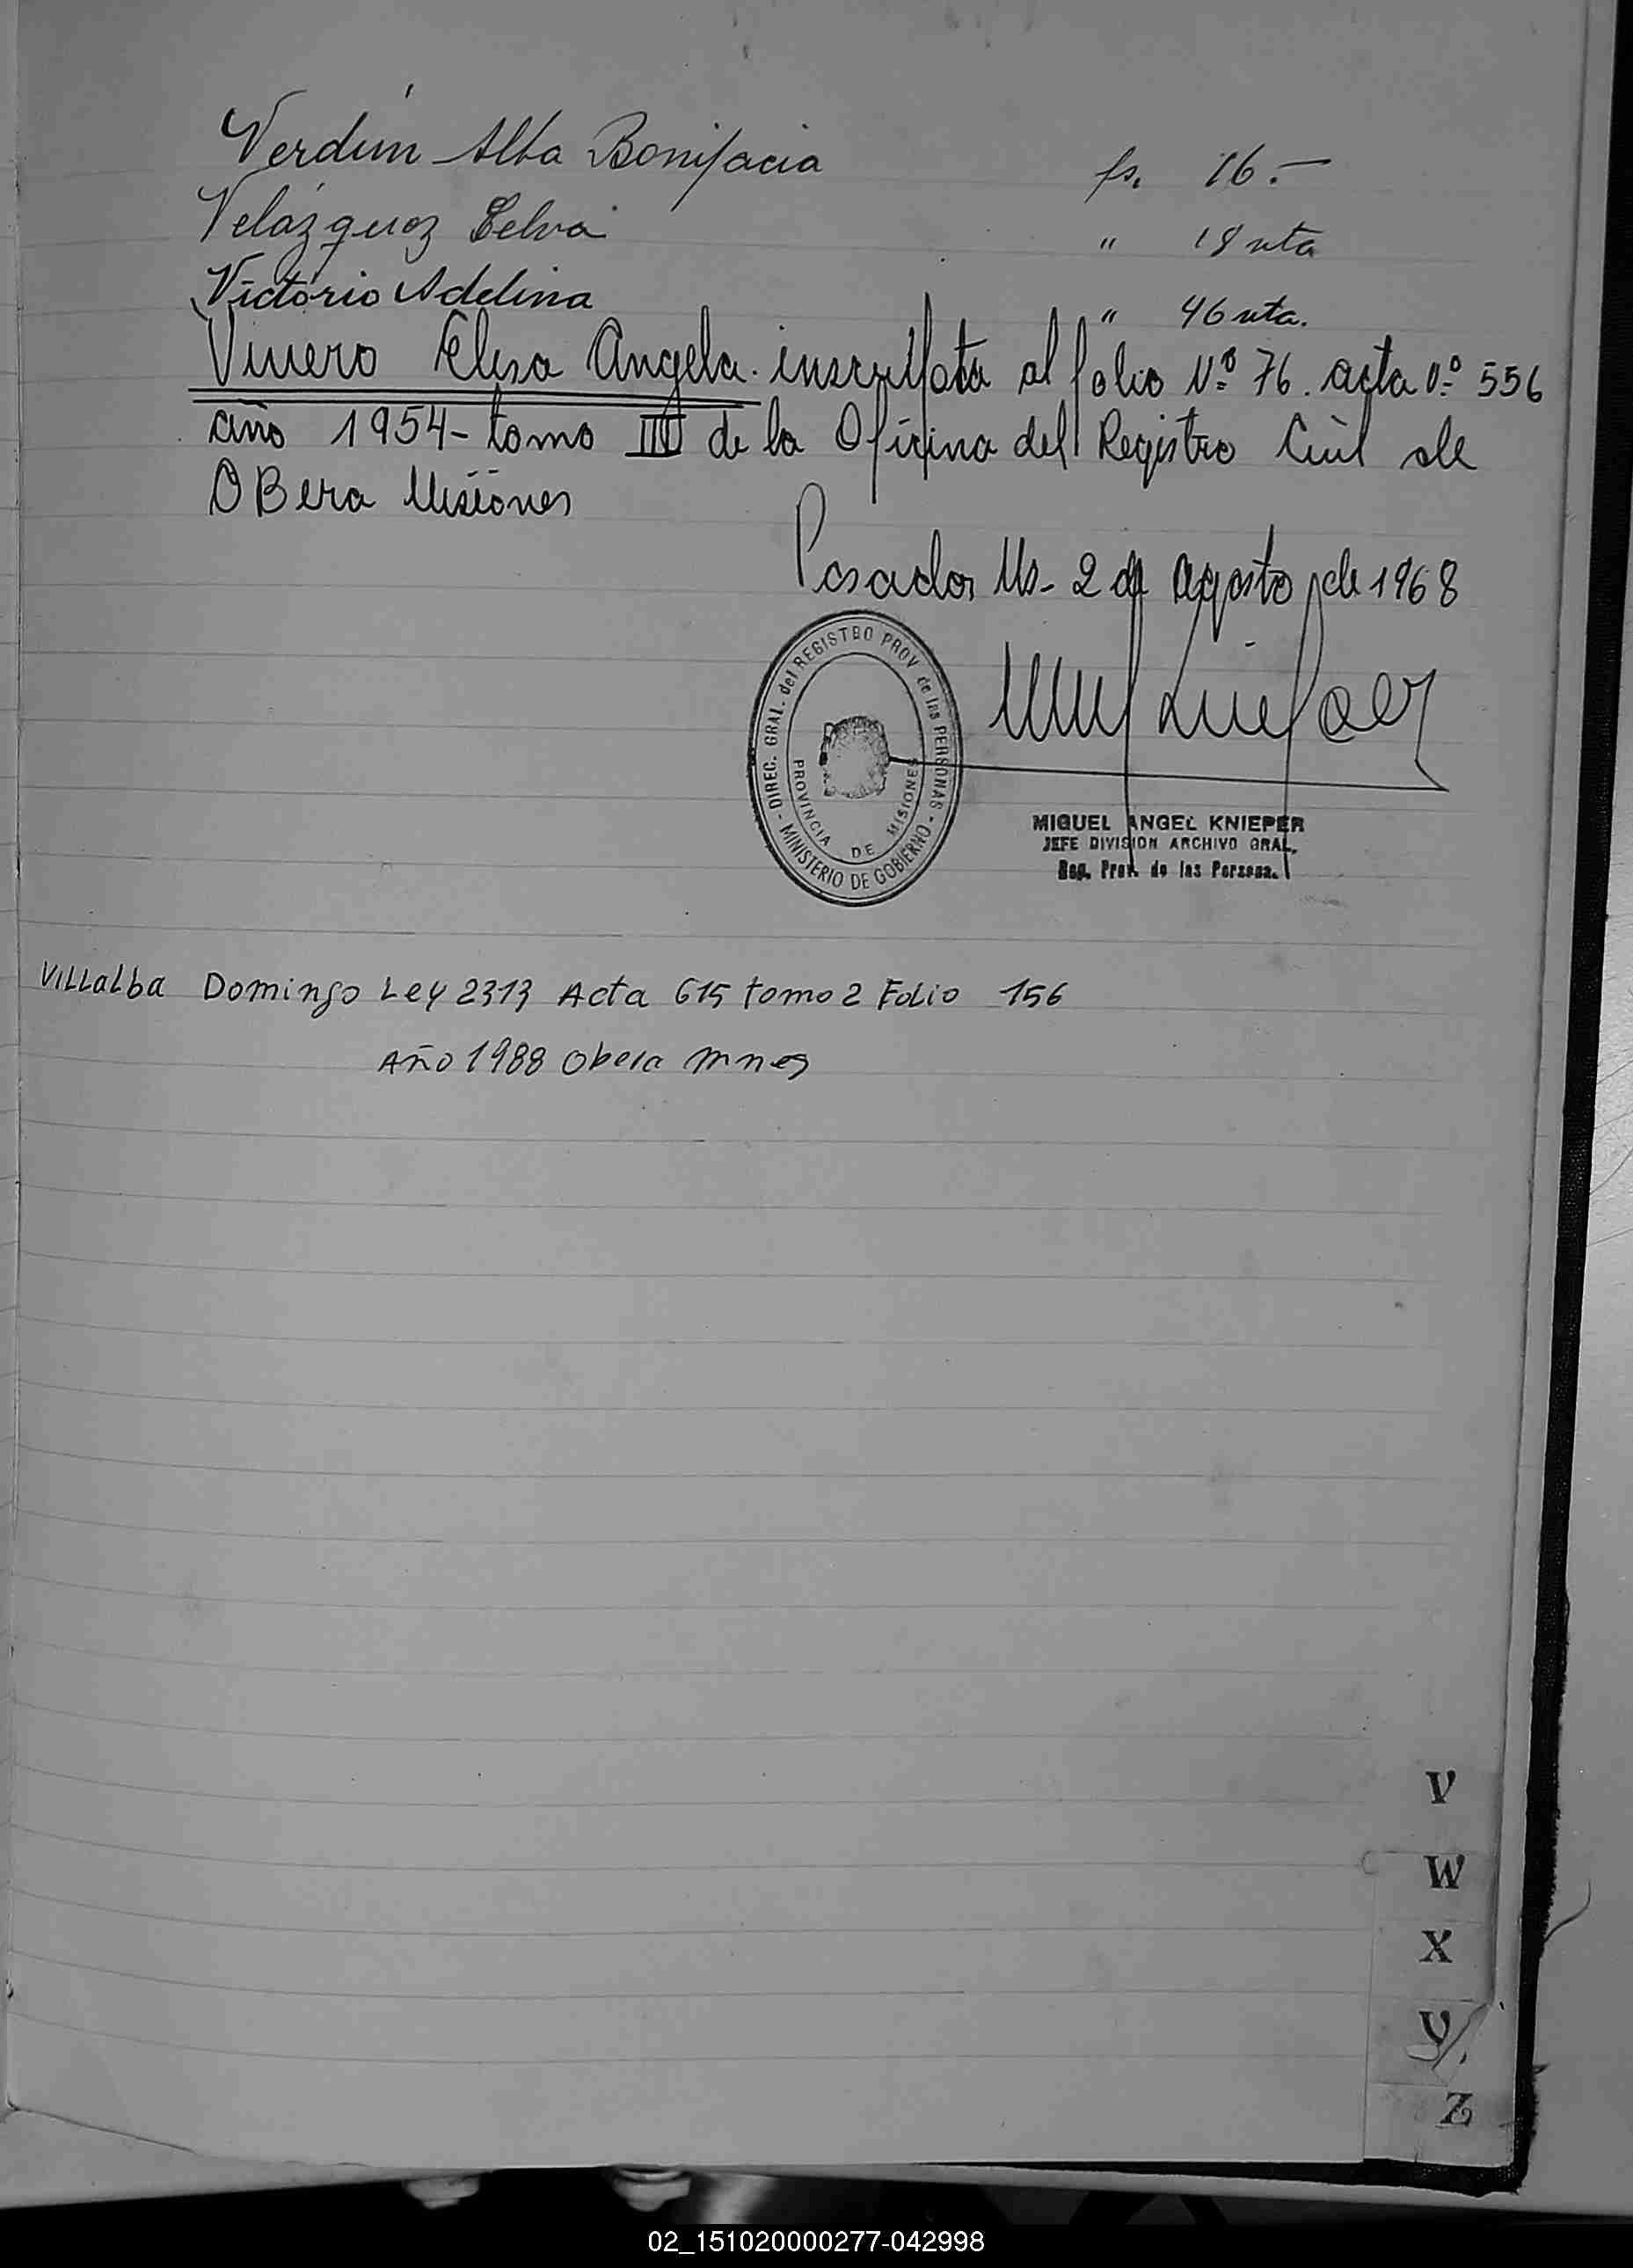 Verdún Alba Bonifacia fs. 16.—
Velázquez Selva " 18 vta
Victorio Adelina " 46 vta.
Vivero Elisa Angela. inscripta al folio Nº 76. acta nº 556
año 1954 - tomo III de la Oficina del Registro Civil de
OBera Misiones
Posadas Ms - 2 de agosto de 1968
DIREC. GRAL. del REGISTRO PROV. de las PERSONAS - MINISTERIO DE GOBIERNO -
PROVINCIA DE MISIONES
MIGUEL ANGEL KNIEPER
JEFE DIVISION ARCHIVO GRAL.
Reg. Prov. de las Person.
VILLalba Domingo Ley 2313 Acta 615 tomo 2 Folio 156
Año 1988 Obera mnes
V
W
X
Y
Z
02_151020000277-042998